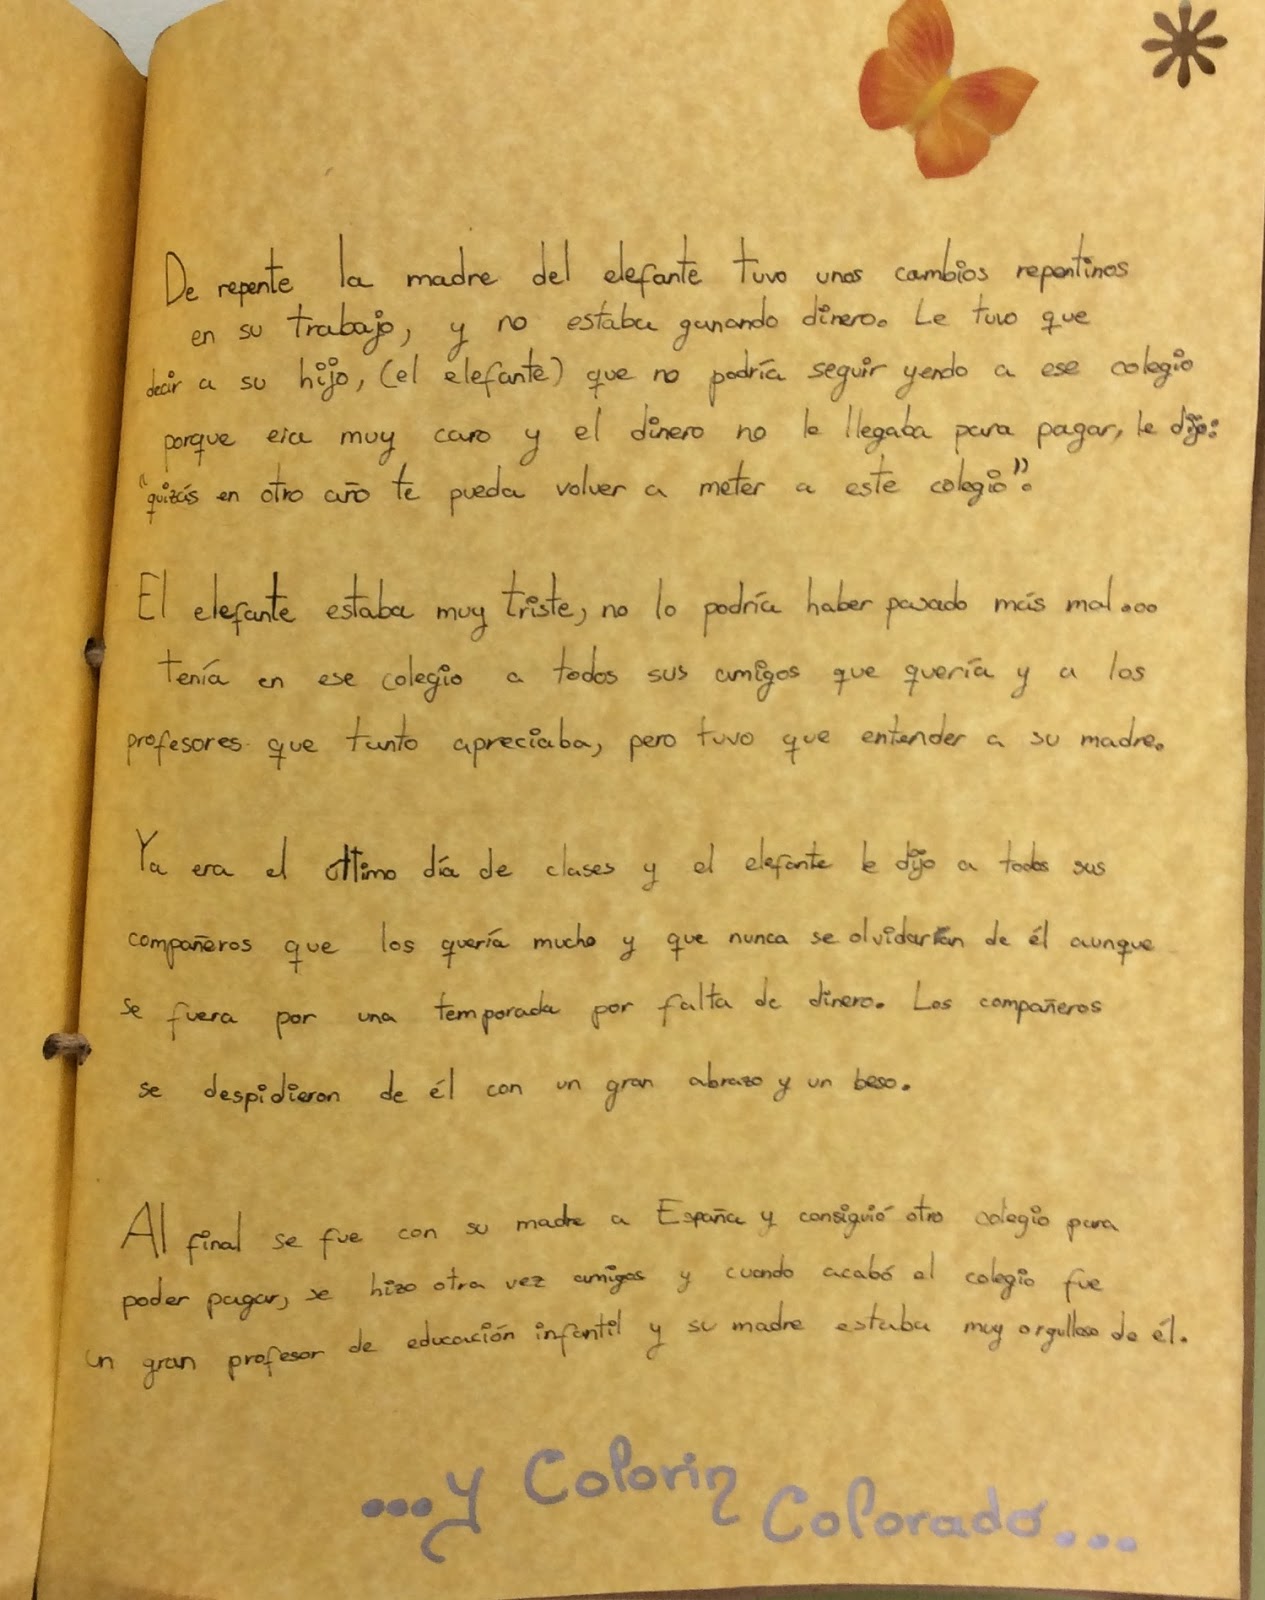 De repente la madre del elefante tuvo unos cambios repentinos
en su trabajo, y no estaba ganando dinero. Le tuvo que
decir a su hijo, (el elefante) que no podría seguir yendo a ese colegio
porque era muy caro y el dinero no le llegaba para pagar, le dijo:
"quizás en otro año te pueda volver a meter a este colegio".
El elefante estaba muy triste, no lo podría haber pasado más mal...
tenía en ese colegio a todos sus amigos que quería y a los
profesores que tanto apreciaba, pero tuvo que entender a su madre.
Ya era el último día de clases y el elefante le dijo a todos sus
compañeros que los quería mucho y que nunca se olvidarían de él aunque
se fuera por una temporada por falta de dinero. Los compañeros
se despidieron de él con un gran abrazo y un beso.
Al final se fue con su madre a España y consiguió otro colegio para
poder pagar, se hizo otra vez amigos y cuando acabó el colegio fue
un gran profesor de educación infantil y su madre estaba muy orgullosa de él.
...y Colorin
Colorado...